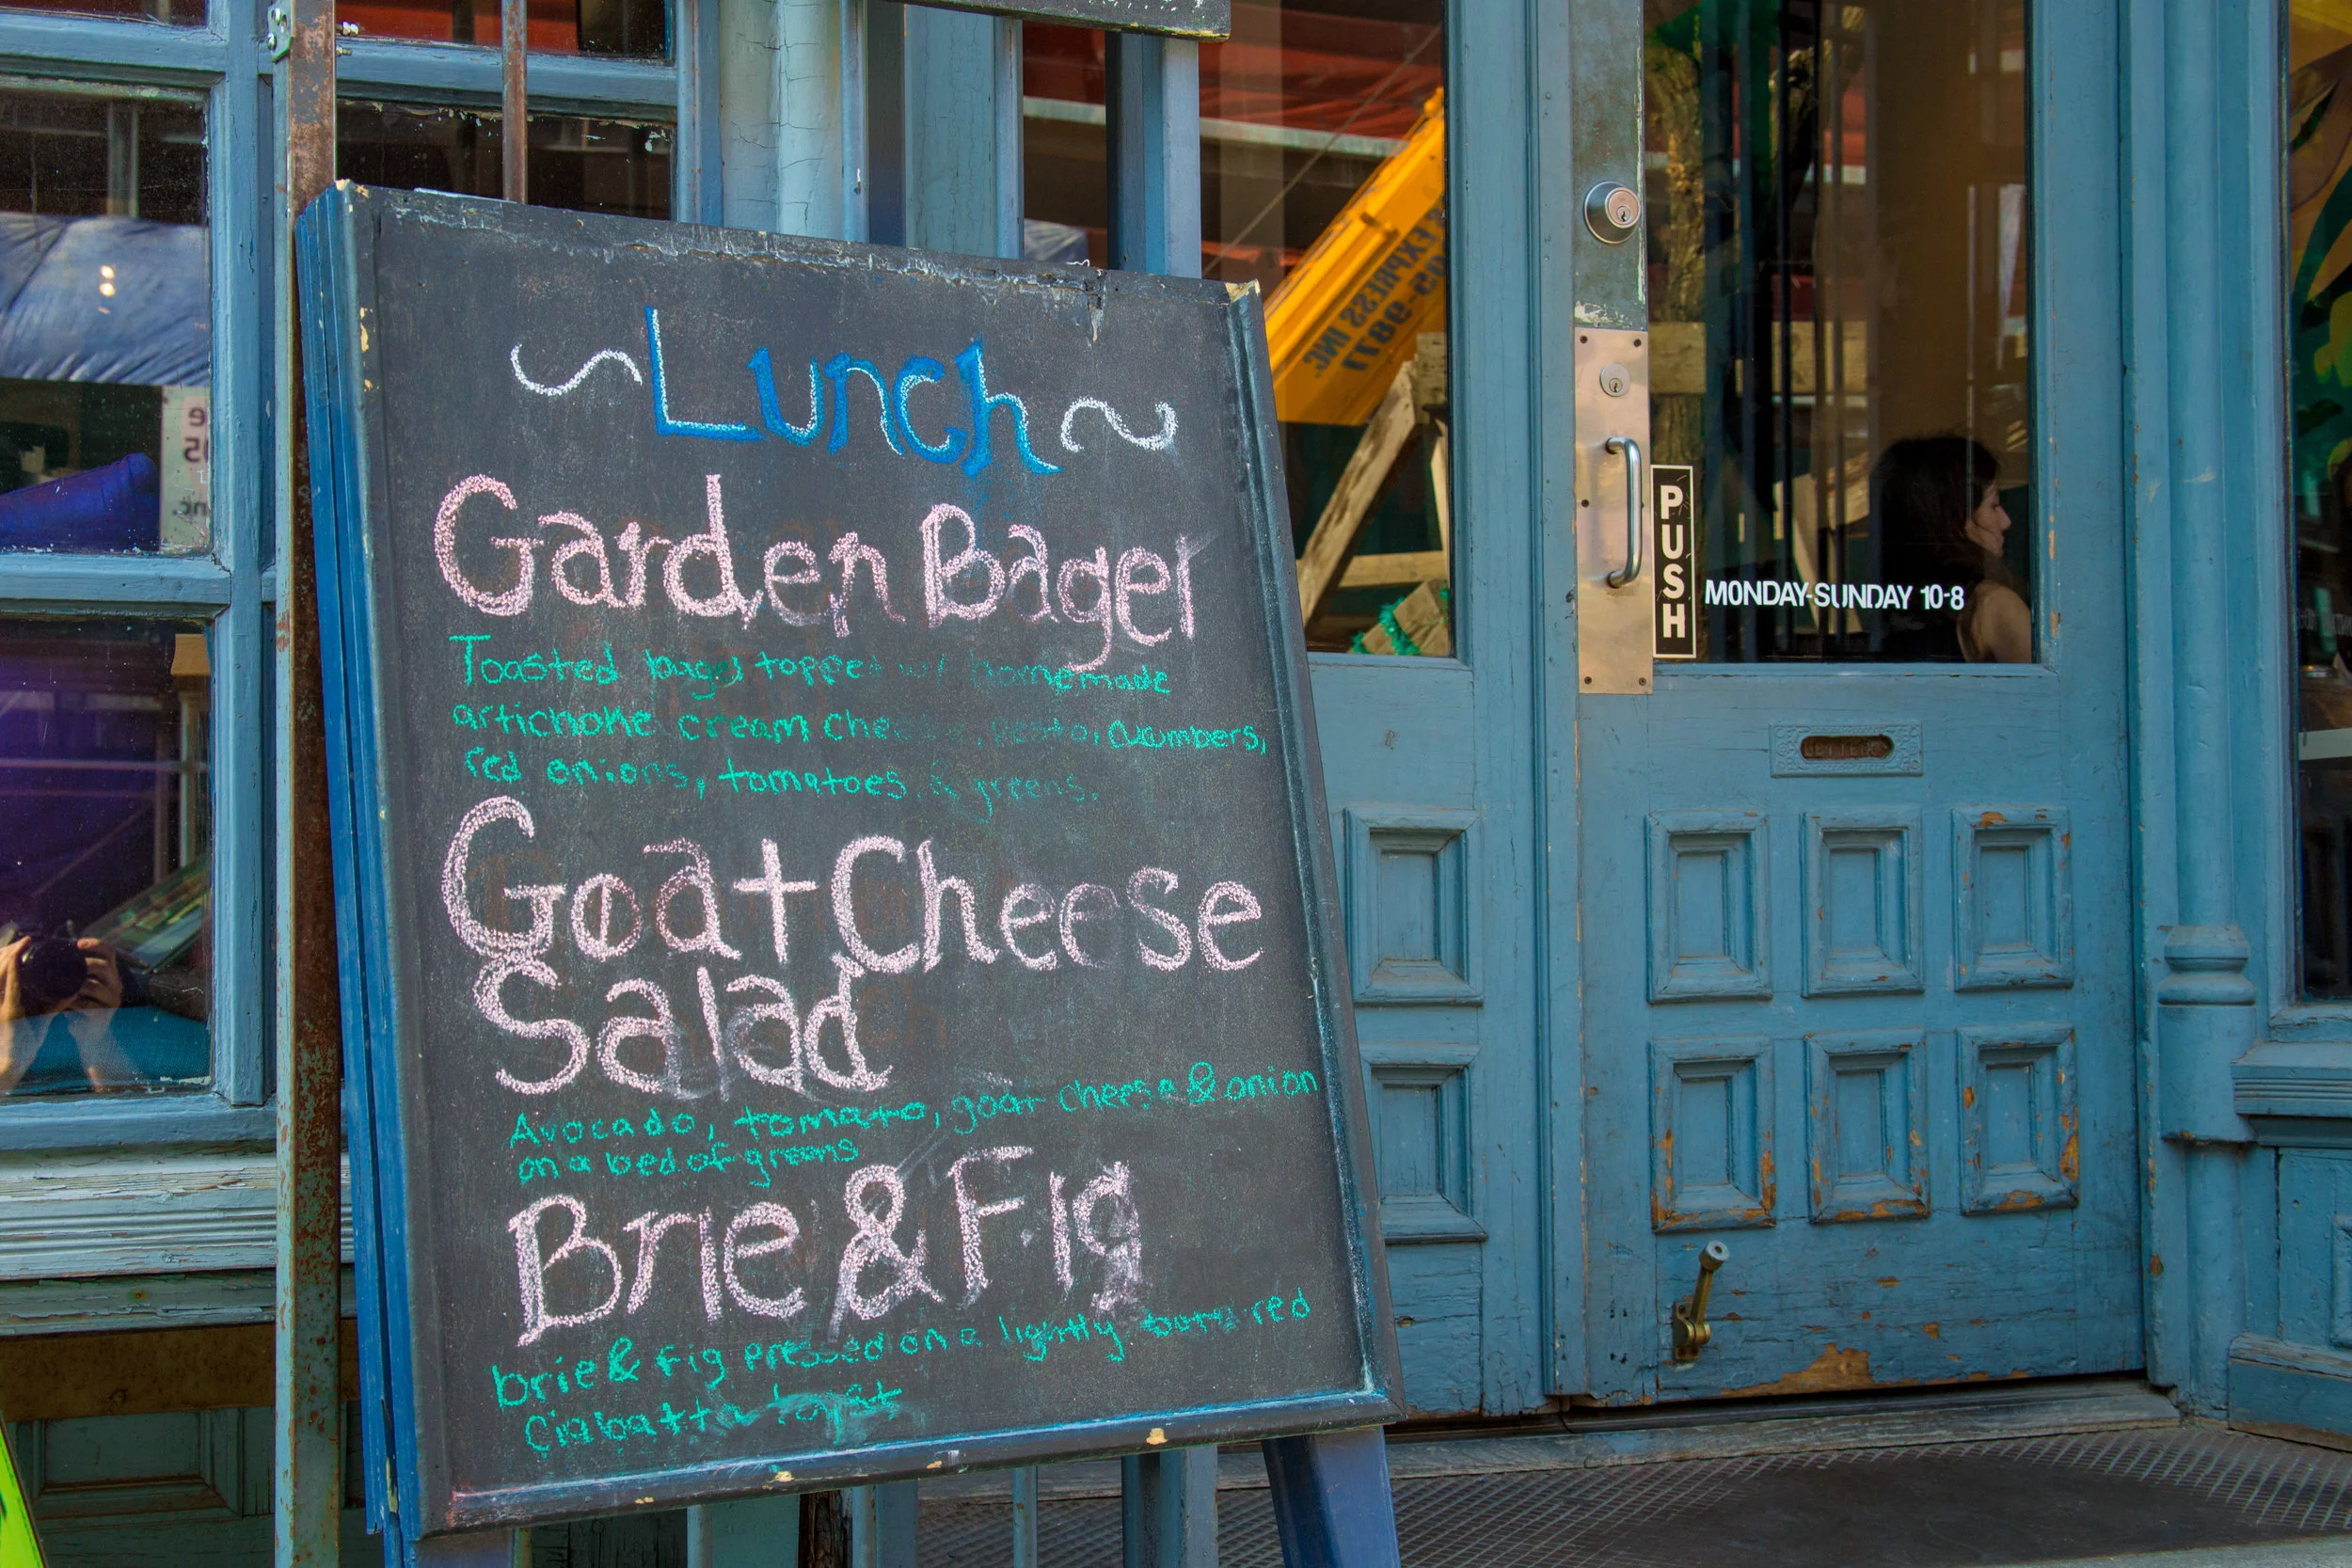 ~Lunch~
Garden Bager
Toasted bagel topped w/ homemade
artichoke cream cheese, pesto, cucumbers,
red onions, tomatoes & greens.
Goat Cheese
Salad
Avocado, tomato, goat cheese & onion
on a bed of greens
Brie & Fig
brie & Fig pressed on a lightly red
Ciabatta
EXPRESS INC
PUSH
MONDAY-SUNDAY 10-8
LETTERS